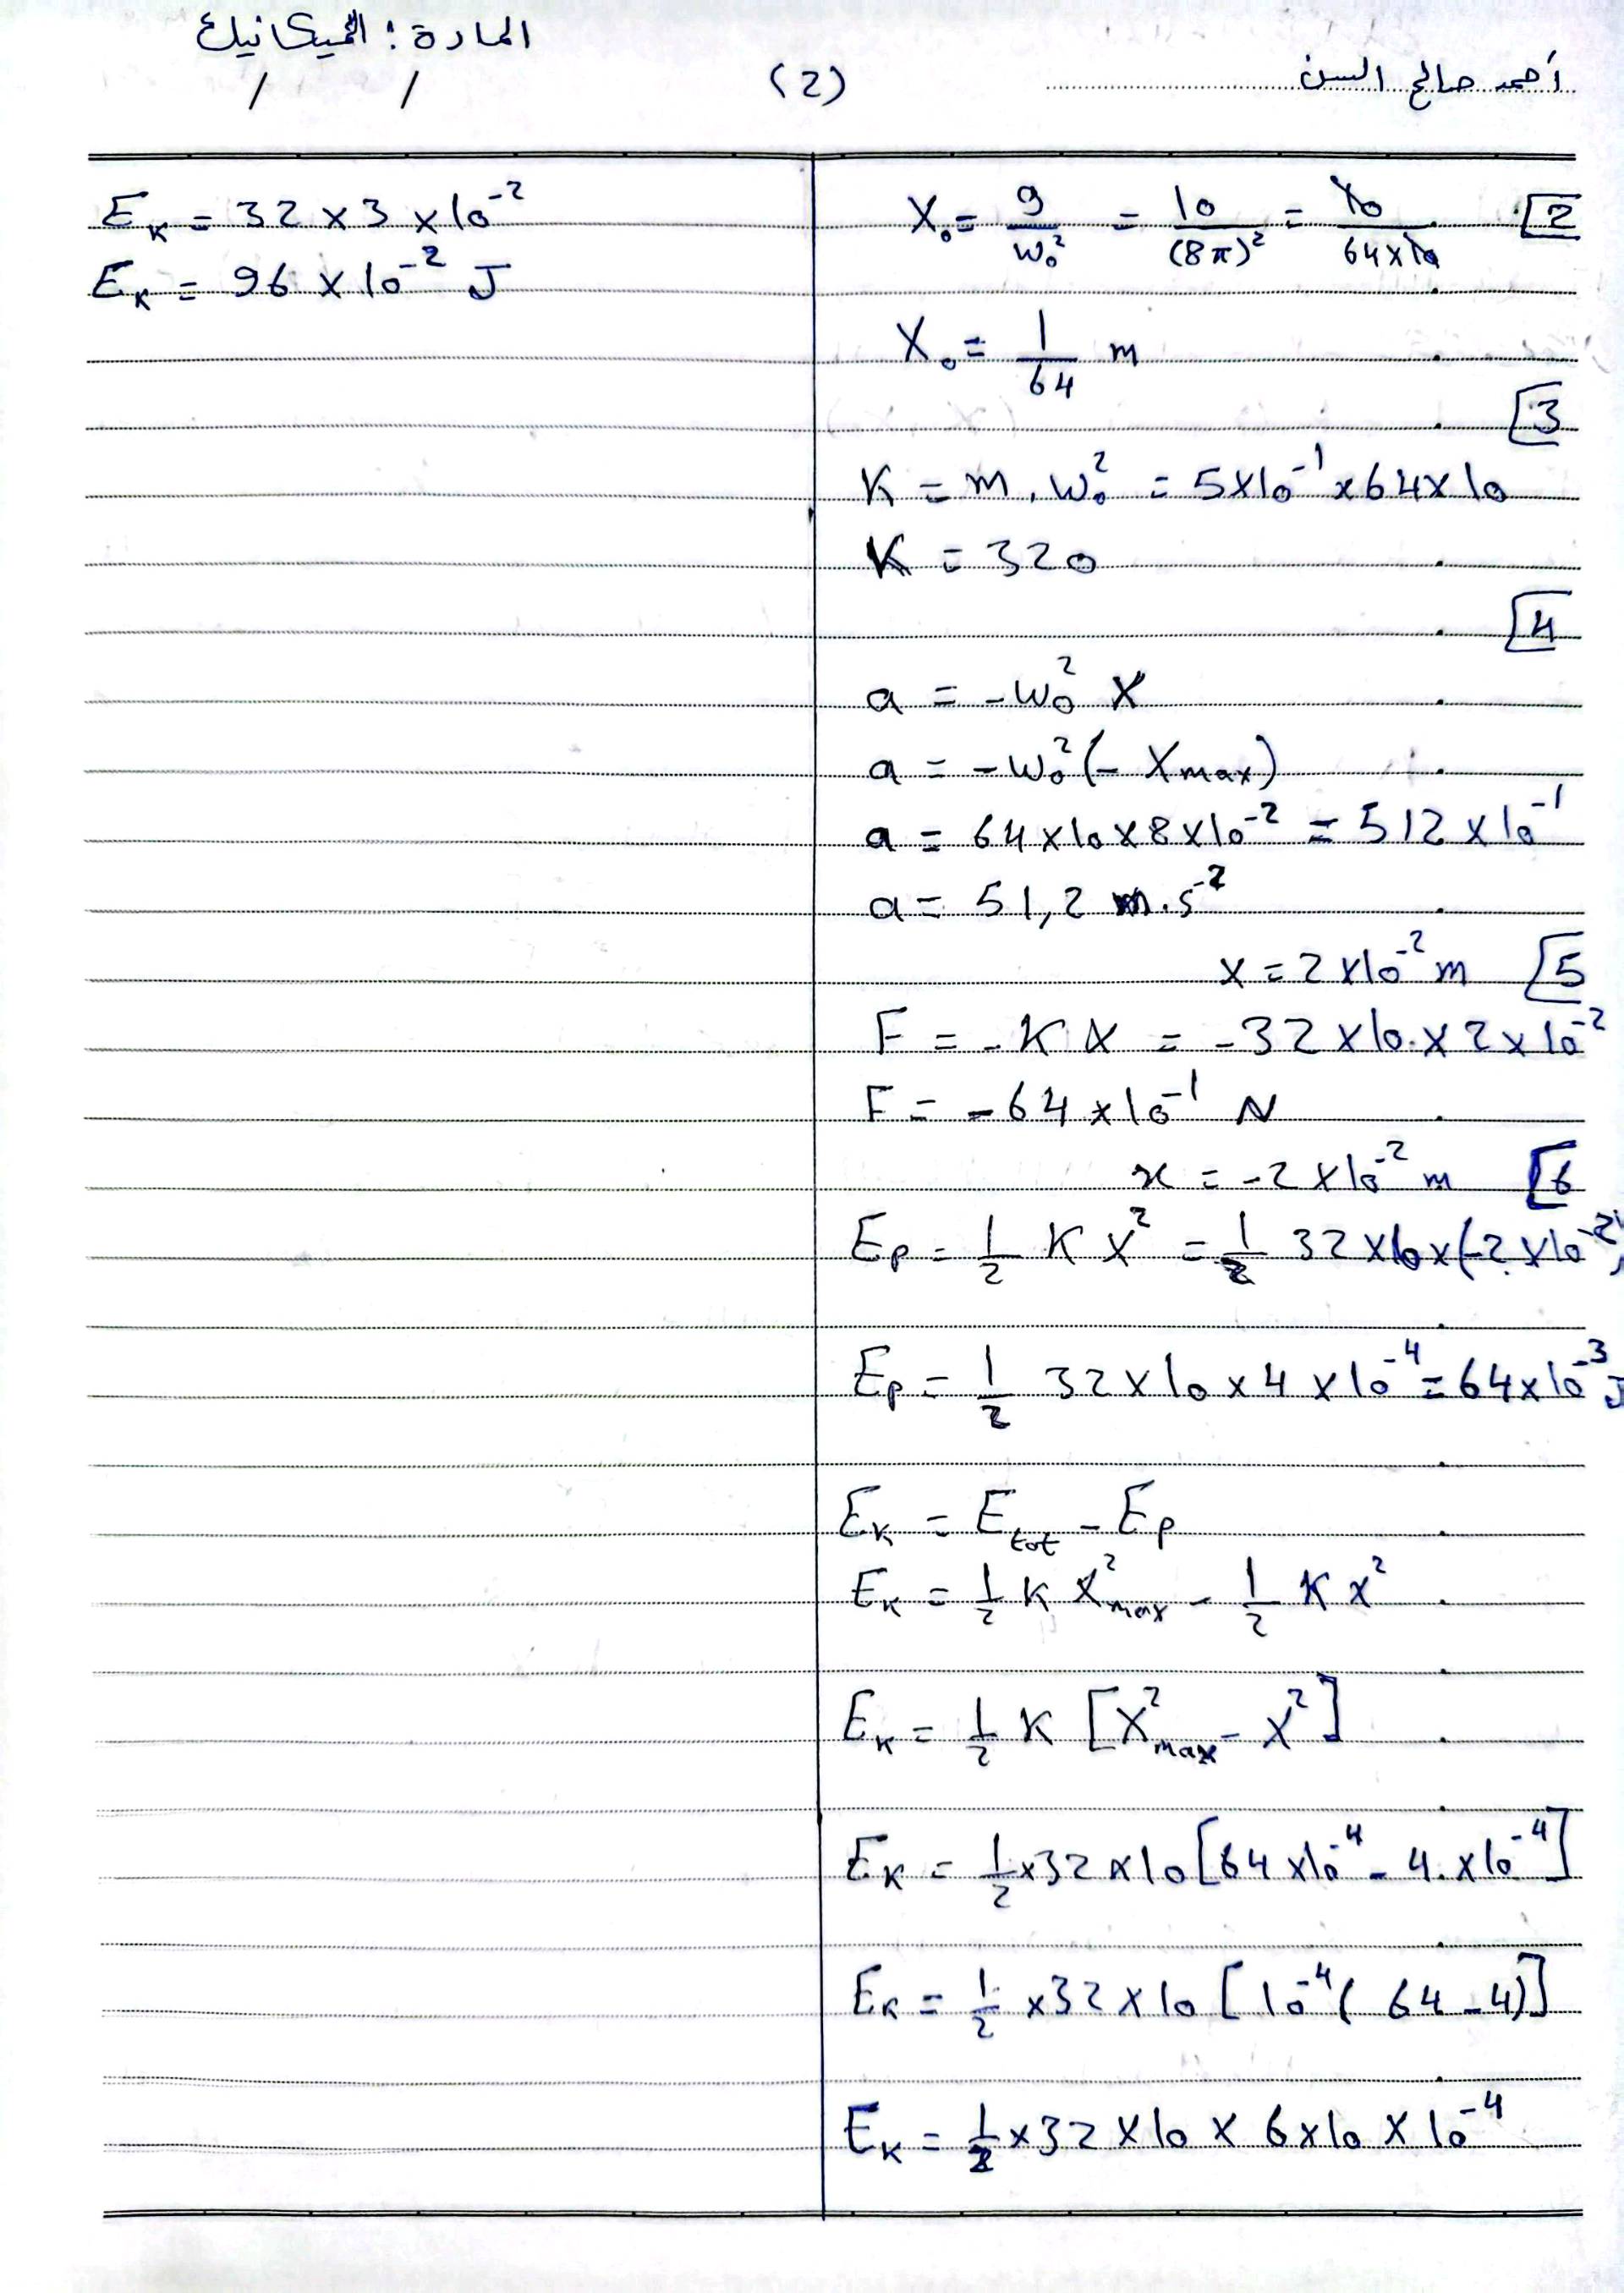 المادة: الميكانيك
/ /
(2)
أحمد صالح السن
2 X₀ = g/ω₀² = 10/(8π)² = 10/64×10
X₀ = 1/64 m
3
K = m . ω₀² = 5×10⁻¹ × 64 × 10
K = 320
4
a = -ω₀² X
a = -ω₀² (- Xmax)
a = 64×10×8×10⁻² = 512 × 10⁻¹
a = 51,2 m.s⁻²
5 x = 2×10⁻² m
F = -K X = -32×10×2×10⁻²
F = -64×10⁻¹ N
6 x = -2×10⁻² m
Ep = 1/2 K X² = 1/2 32×10×(-2×10⁻²)
Ep = 1/2 32×10×4×10⁻⁴ = 64×10⁻³ J
Eₖ = Etot - Ep
Eₖ = 1/2 K X²max - 1/2 K x²
Eₖ = 1/2 K [X²max - X²]
Eₖ = 1/2 ×32×10 [64×10⁻⁴ - 4.×10⁻⁴]
Eₖ = 1/2 ×32×10 [10⁻⁴ ( 64-4)]
Eₖ = 1/2 ×32×10×6×10×10⁻⁴
Eₖ = 32×3×10⁻²
Eₖ = 96×10⁻² J